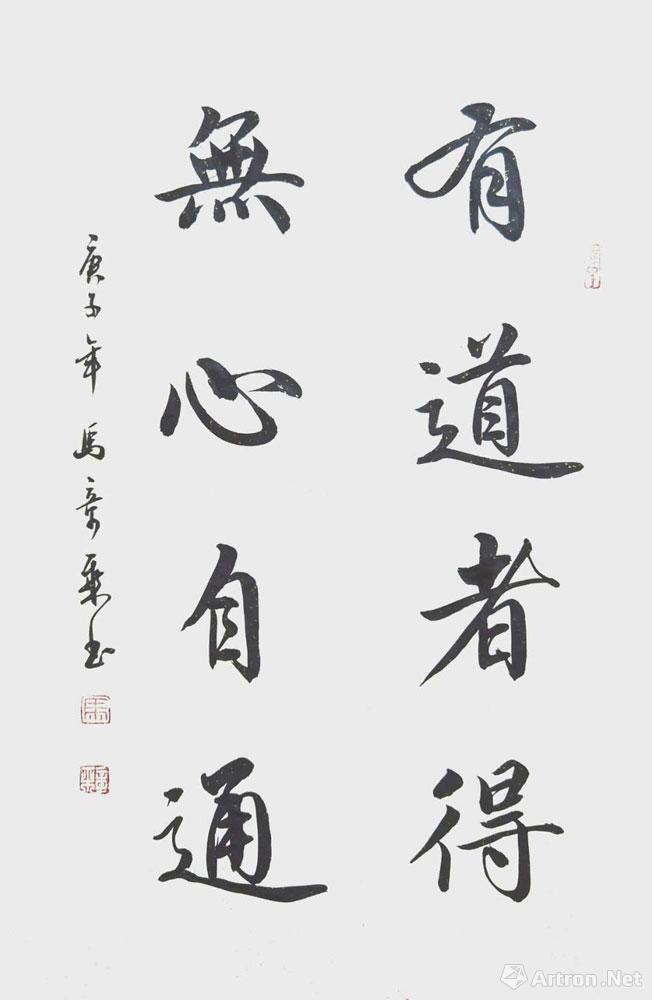 有道者得
無心自通
庚子年 馬章乘书
Artron.Net